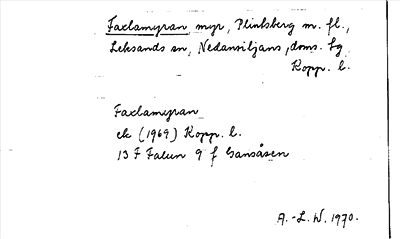 Faxlamyran myr, Plintsberg m. fl.,
Leksands sn, Nedansiljans doms. lg
Kopp. l.
Faxlamyran
ek (1969) Kopp. l.
13 F Falun 9 f Gansåsen
A.-L. W. 1970.